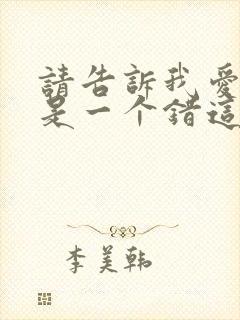 請告訴我愛
是一个錯這
李美韩